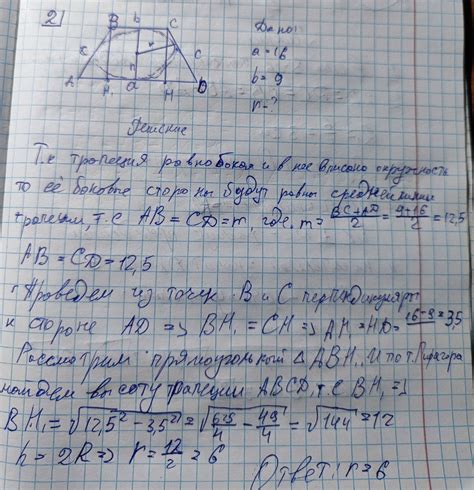 2)
B b C
c r c
A H₁ a H D
Дано:
a = 16
b = 9
r = ?
Решение
Т.к трапеция равнобокая и в нее вписана окружность
то её боковые стороны будут равны средней линии
трапеции, т.е AB = CD = m, где m = BC+AD/2 = 9+16/2 = 12,5
AB = CD = 12,5
Проведем из точек B и C перпендикуляры
к стороне AD => BH₁ = CH => AH = HD = 16-9/2 = 3,5
Рассмотрим прямоугольный △ ABH₁. И по т. Пифагора
найдем высоту трапеции ABCD, т.е BH₁ =>
BH₁ = √12,5² - 3,5² = √625/4 - 49/4 = √144 = 12
h = 2R => r = 12/2 = 6
Ответ: r = 6